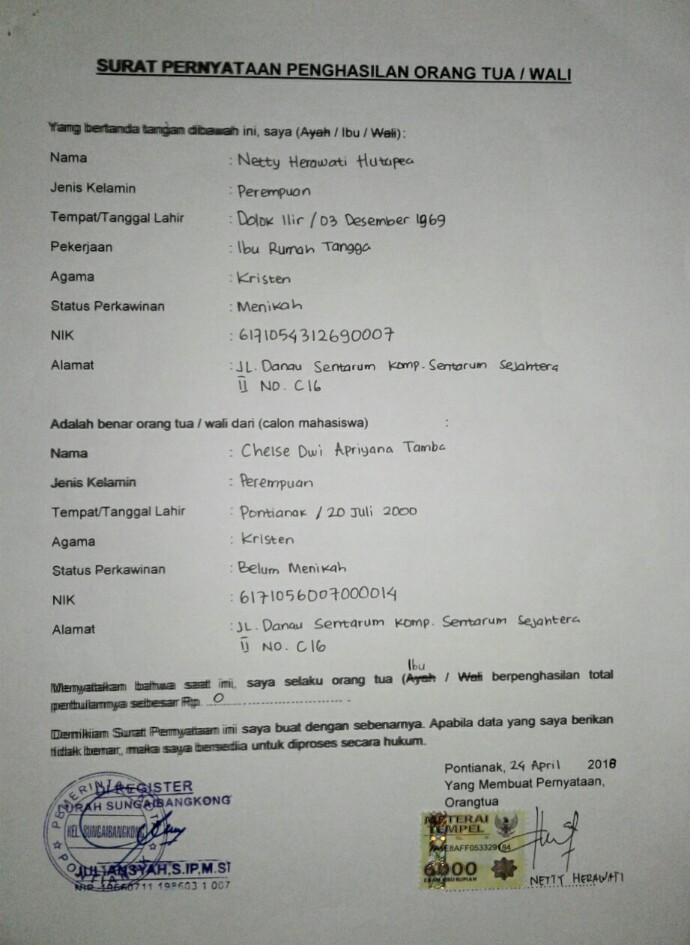 SURAT PERNYATAAN PENGHASILAN ORANG TUA / WALI
Yang bertanda tangan dibawah ini, saya (Ayah / Ibu / Wali):
Nama : Netty Herawati Hutapea
Jenis Kelamin : Perempuan
Tempat/Tanggal Lahir : Dolok Ilir / 03 Desember 1969
Pekerjaan : Ibu Rumah Tangga
Agama : Kristen
Status Perkawinan : Menikah
NIK : 6171054312690007
Alamat : JL. Danau Sentarum Komp. Sentarum Sejahtera
II NO. C16
Adalah benar orang tua / wali dari (calon mahasiswa) :
Nama : Chelse Dwi Apriyana Tamba
Jenis Kelamin : Perempuan
Tempat/Tanggal Lahir : Pontianak / 20 Juli 2000
Agama : Kristen
Status Perkawinan : Belum Menikah
NIK : 6171056007000014
Alamat : JL. Danau Sentarum Komp. Sentarum Sejahtera
II NO. C16
Ibu
Menyatakan bahwa saat ini, saya selaku orang tua (Ayah / Wali berpenghasilan total
perbulannya sebesar Rp. 0
Demikian Surat Pernyataan ini saya buat dengan sebenarnya. Apabila data yang saya berikan
tidak benar, maka saya bersedia untuk diproses secara hukum.
Pontianak, 24 April 2018
Yang Membuat Pernyataan,
Orangtua
DI REGISTER
LURAH SUNGAIBANGKONG
KEL. SUNGAIBANGKONG
JULIANSYAH, S.IP, M.SI
NIP. 19660711 198603 1 007
METERAI
TEMPEL
6000
ENAM RIBU RUPIAH
NETTY HERAWATI